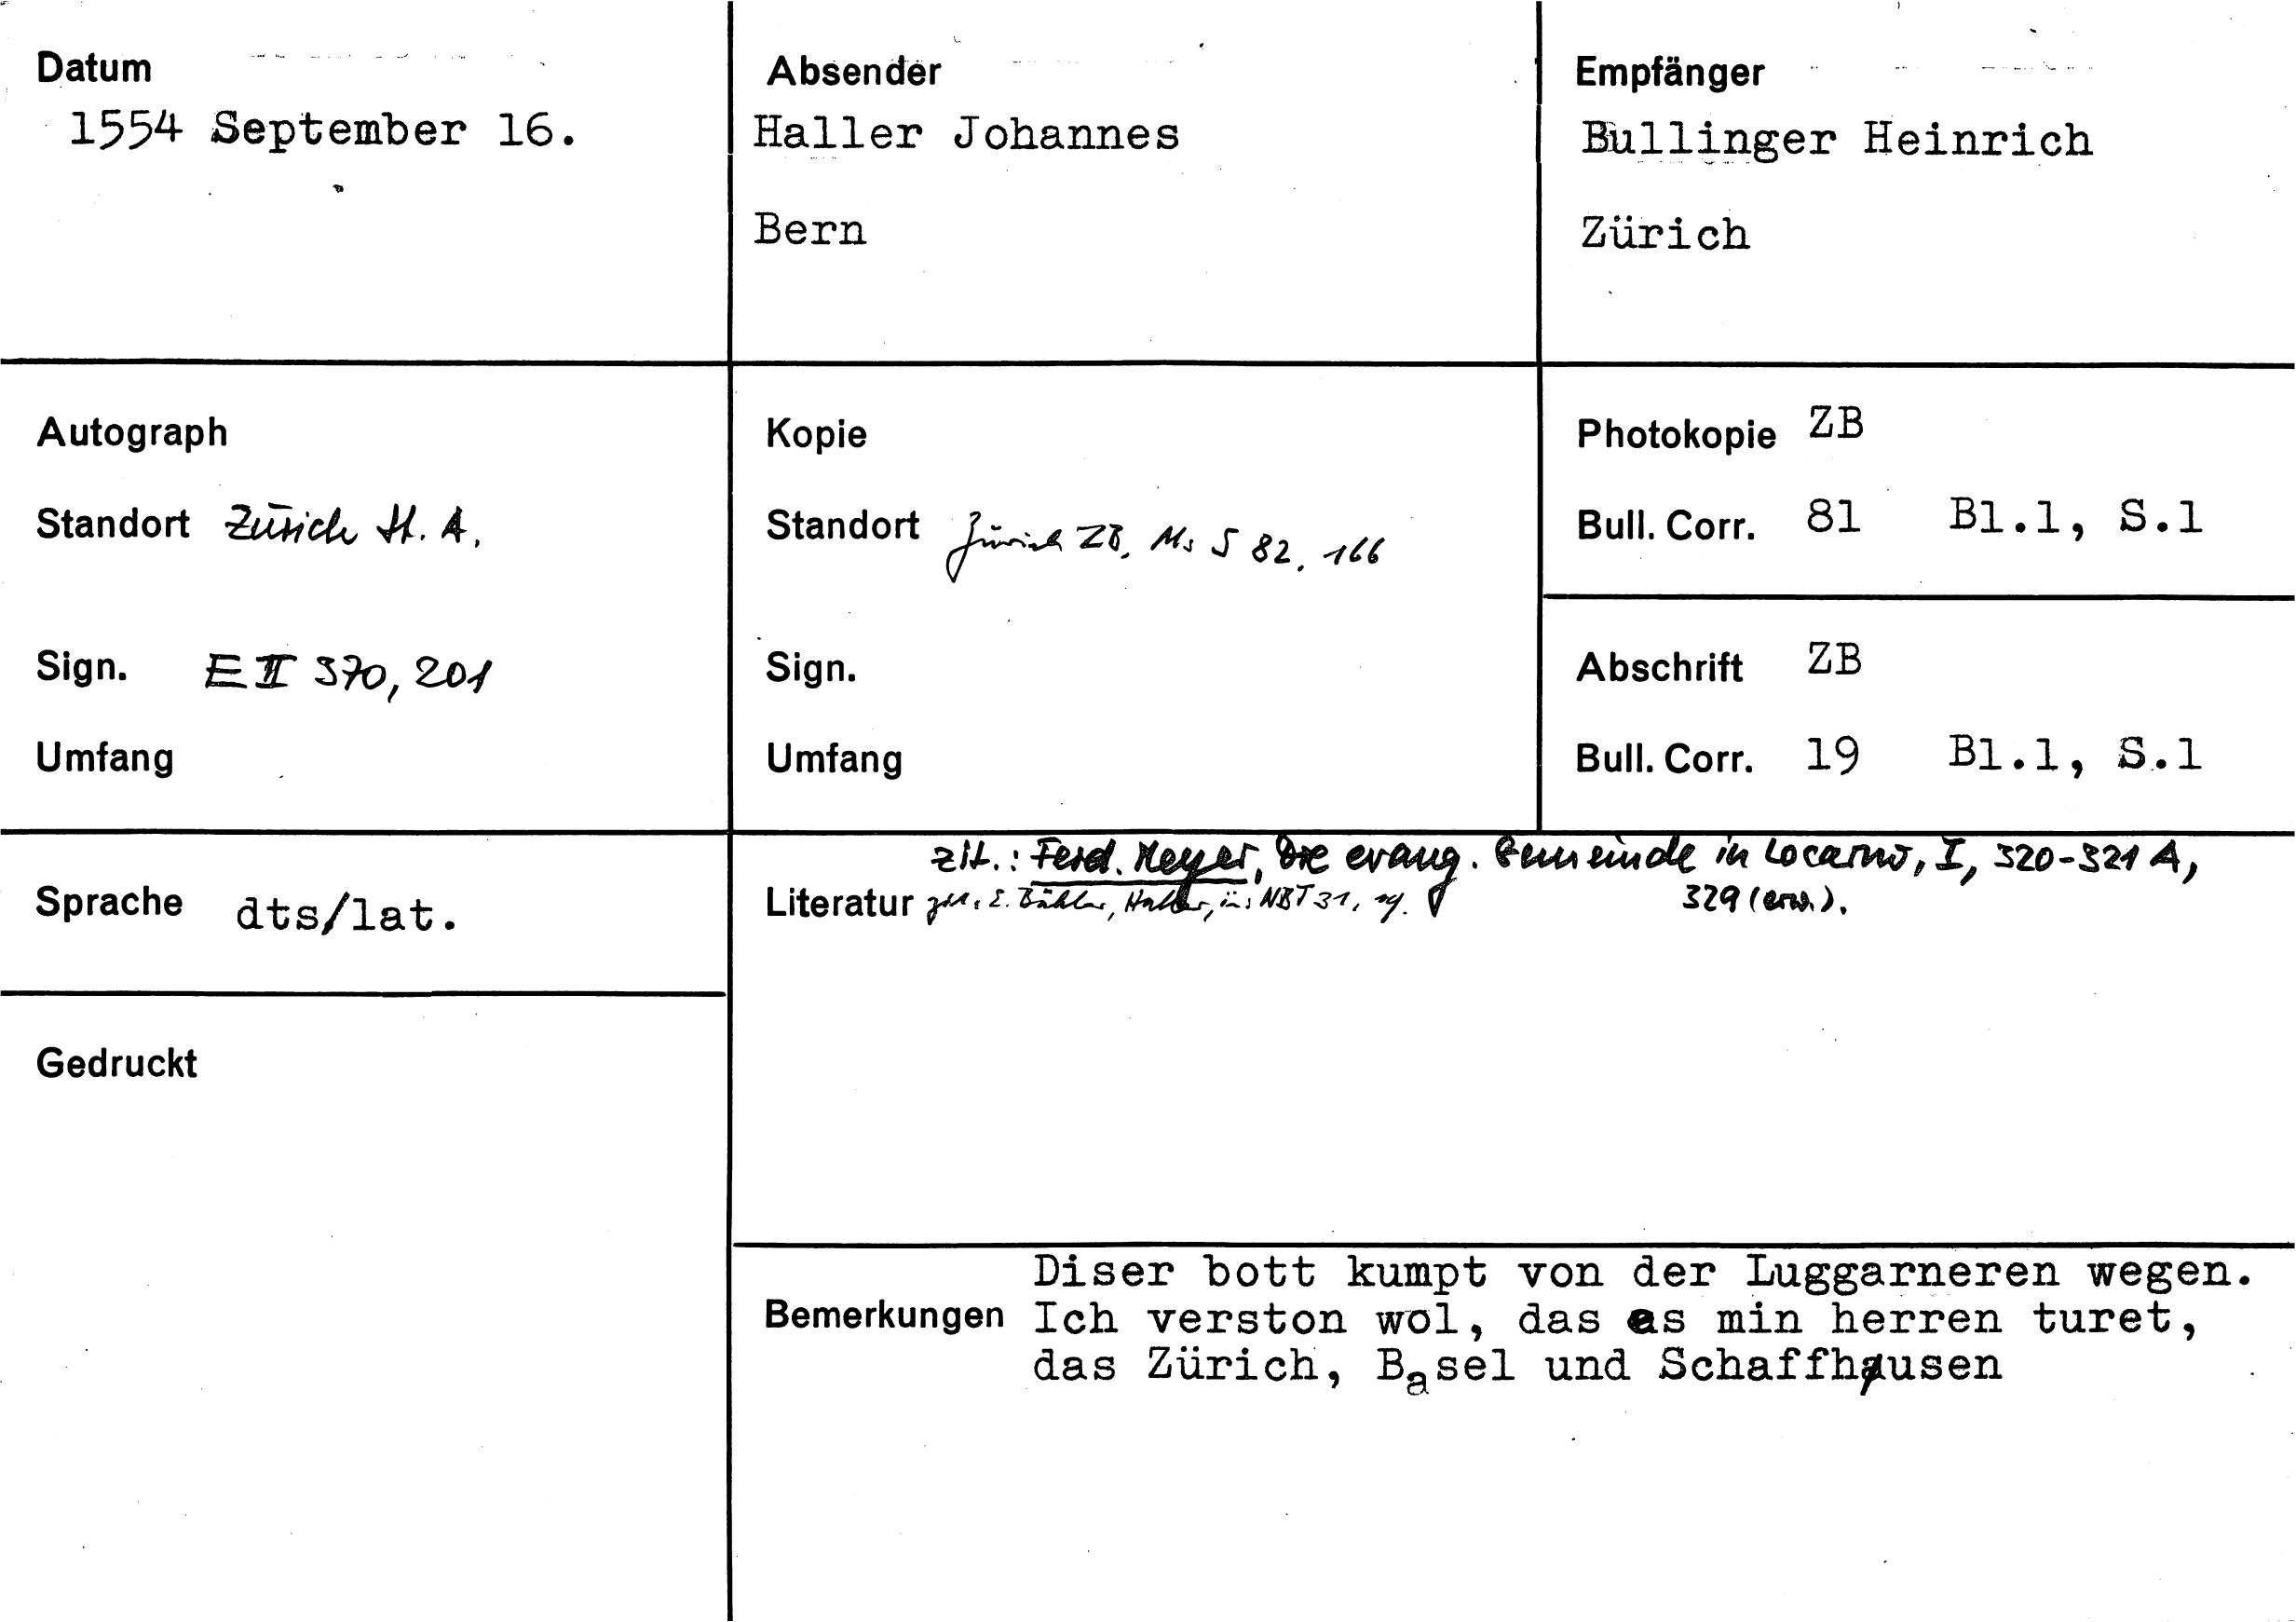 Datum
1554 September 16.
Absender
Haller Johannes
Bern
Empfänger
Bullinger Heinrich
Zürich
Autograph
Standort Zürich St. A.
Sign. E II 370, 201
Umfang
Kopie
Standort Zürich ZB, Ms S 82, 166
Sign.
Umfang
Photokopie ZB
Bull. Corr. 81 Bl.1, S.1
Abschrift ZB
Bull. Corr. 19 Bl.1, S.1
Sprache dts/lat.
Gedruckt
zit.: Ferd. Meyer, Die evang. Gemeinde in Locarno, I, 320-321 A,
329 (erw.).
Literatur E. Bähler, Haller, in: NBT 31,
Diser bott kumpt von der Luggarneren wegen.
Bemerkungen Ich verston wol, das es min herren turet,
das Zürich, Basel und Schaffhausen